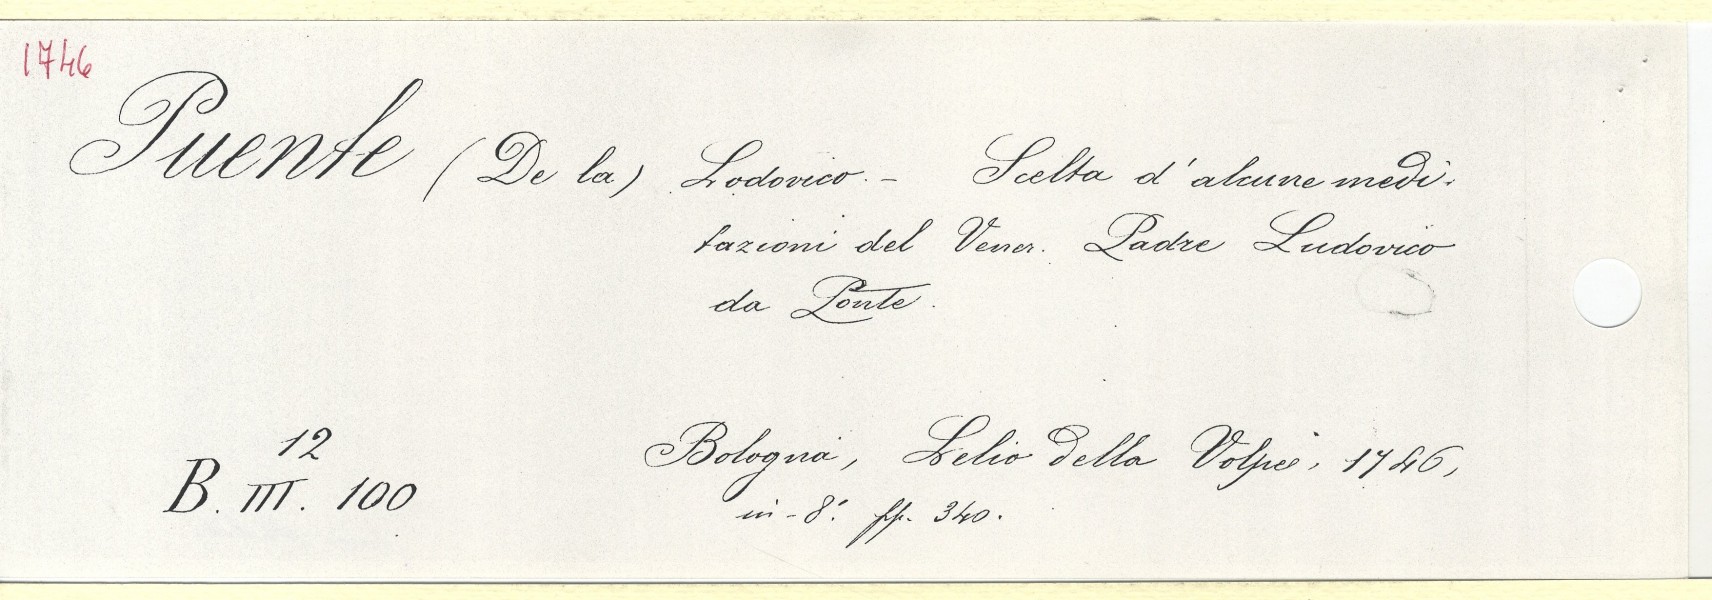 1746
Puente (De la) Lodovico. - Scelta d'alcune medi-
tazioni del Vener. Padre Ludovico
da Ponte.
12
B. III. 100
Bologna, Lelio della Volpe, 1746,
in-8.° pp. 340.